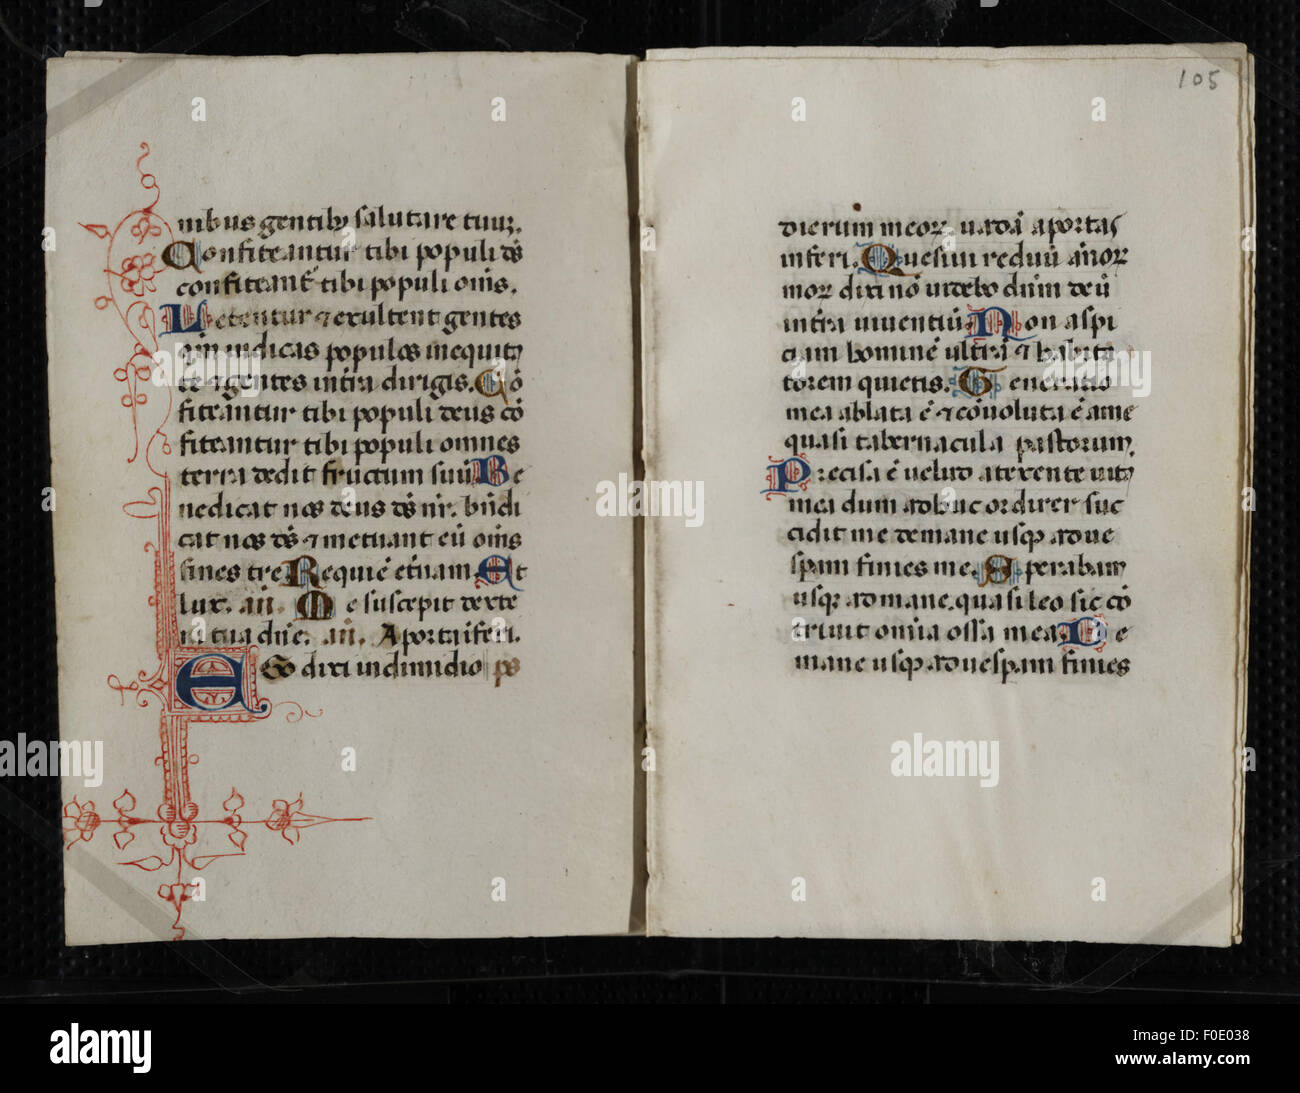 nibus gentibꝫ salutare tuuꝫ.
Confiteantur tibi populi dꝰ
confiteant᷑ tibi populi oms̄.
Letentur ⁊ exultent gentes
qm̄ iudicas populos in equita
te ⁊ gentes in tr̄a dirigis. Cō
fiteantur tibi populi deus cō
fiteantur tibi populi omnes
terra dedit fructum suū Be
nedicat nos deus ds̄ nr̄. bn̄di
cat nos ds̄ ⁊ metuant eū oms̄
fines tr̄e Requiē et̄nam Et
lux. an̄. Me suscepit dexte
ra tua dn̄e. an̄. A porta īferi.
Ego dixi in dimidio
105
dierum meoꝝ. uadā a portas
inferi. Quesiui reduū annoꝝ
meoꝝ dixi nō uidebo dn̄m deū
in tr̄a uiuentiū Non aspi
ciam hominē ultra ⁊ habita
torem quietis. Generatio
mea ablata ē ⁊ cōuoluta ē a me
quasi tabernacula pastorum
Precisa ē uelud a texente uita
mea dum adhuc ordirer suc
cidit me de mane usqꝫ ad ue
spam finies me. Sperabam
usqꝫ ad mane. quasi leo sic cō
triuit om̄ia ossa mea De
mane usqꝫ ad uespam finies
alamy stock photo
Image ID: F0E038
www.alamy.com